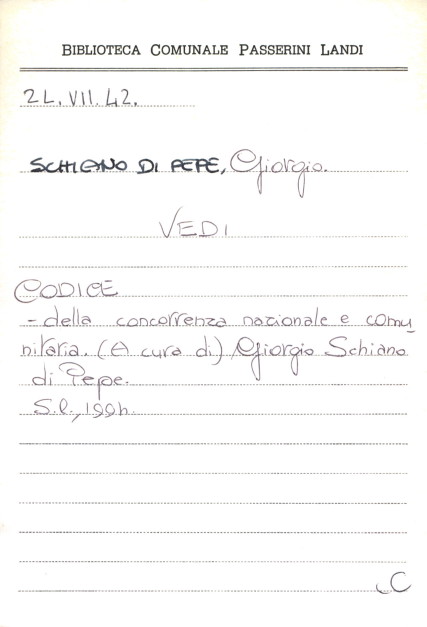 BIBLIOTECA COMUNALE PASSERINI LANDI
2L. VII. 42.
SCHIANO DI PEPE, Giorgio.
VEDI
CODICE
- della concorrenza nazionale e comu
nitaria. (A cura di) Giorgio Schiano
di Pepe.
S.l., 1994.
C